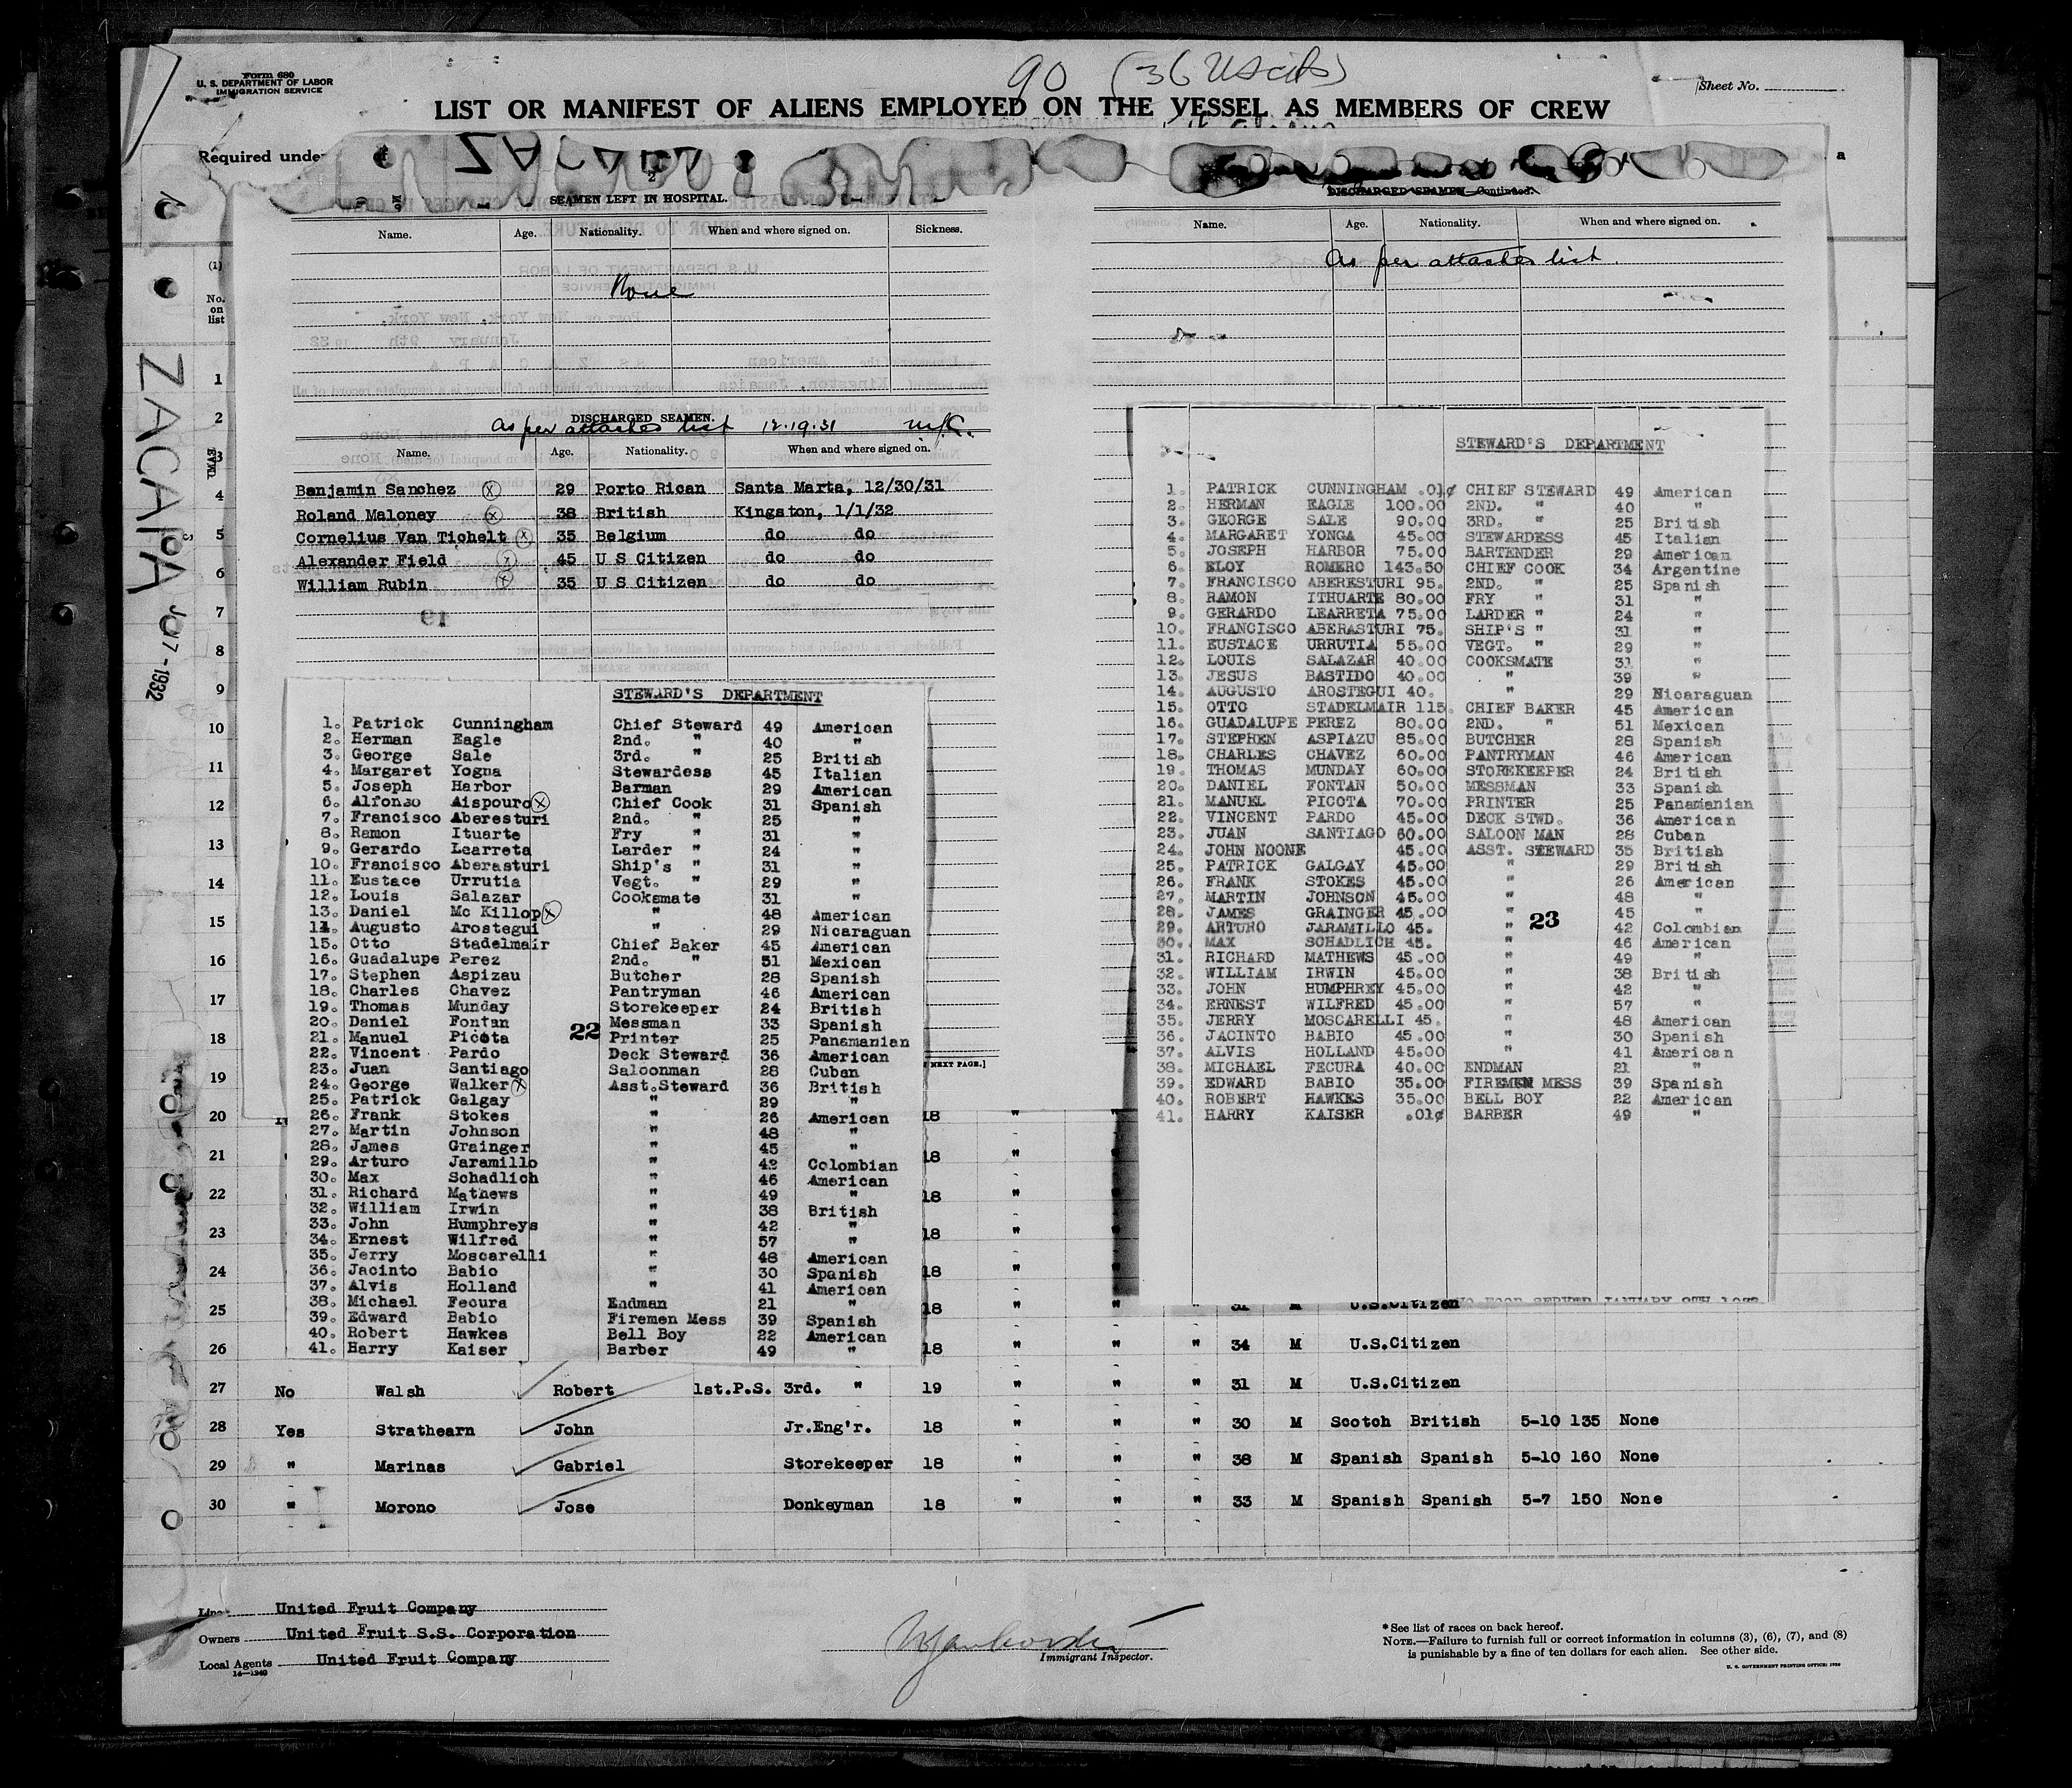 90 (36 US cits)
Form 680
U. S. DEPARTMENT OF LABOR
IMMIGRATION SERVICE
Sheet No.
LIST OR MANIFEST OF ALIENS EMPLOYED ON THE VESSEL AS MEMBERS OF CREW
Required under
ZACAPA
JA 7-1932
(1)
No.
on
list
2
SEAMEN LEFT IN HOSPITAL.
Name. Age. Nationality. When and where signed on. Sickness.
None
DISCHARGED SEAMEN.
As per attached list 12-19-31
Name. Age. Nationality. When and where signed on.
Benjamin Sanchez 29 Porto Rican Santa Marta, 12/30/31
Roland Maloney 38 British Kingston, 1/1/32
Cornelius Van Tichelt 35 Belgium do do
Alexander Field 45 U S Citizen do do
William Rubin 35 U S Citizen do do
DISCHARGED SEAMEN—Continued.
Name. Age. Nationality. When and where signed on.
As per attached list.
STEWARD'S DEPARTMENT
1. Patrick Cunningham Chief Steward 49 American
2. Herman Eagle 2nd. " 40 "
3. George Sale 3rd. " 25 British
4. Margaret Yogna Stewardess 45 Italian
5. Joseph Harbor Barman 29 American
6. Alfonso Aispouro Chief Cook 31 Spanish
7. Francisco Aberesturi 2nd. " 25 "
8. Ramon Ituarte Fry " 31 "
9. Gerardo Learreta Larder " 24 "
10. Francisco Aberasturi Ship's " 31 "
11. Eustace Urrutia Vegt. " 29 "
12. Louis Salazar Cooksmate 31 "
13. Daniel Mc Killop " 48 American
14. Augusto Arostegui " 29 Nicaraguan
15. Otto Stadelmair Chief Baker 45 American
16. Guadalupe Perez 2nd. " 51 Mexican
17. Stephen Aspizau Butcher 28 Spanish
18. Charles Chavez Pantryman 46 American
19. Thomas Munday Storekeeper 24 British
20. Daniel Fontan Messman 33 Spanish
21. Manuel Picota Printer 25 Panamanian
22
22. Vincent Pardo Deck Steward 36 American
23. Juan Santiago Saloonman 28 Cuban
24. George Walker Asst.Steward 36 British
25. Patrick Galgay " 29 "
26. Frank Stokes " 26 American
27. Martin Johnson " 48 "
28. James Grainger " 45 "
29. Arturo Jaramillo " 42 Colombian
30. Max Schadlich " 46 American
31. Richard Mathews " 49 "
32. William Irwin " 38 British
33. John Humphreys " 42 "
34. Ernest Wilfred " 57 "
35. Jerry Moscarelli " 48 American
36. Jacinto Babio " 30 Spanish
37. Alvis Holland " 41 American
38. Michael Fecura Endman 21 "
39. Edward Babio Firemen Mess 39 Spanish
40. Robert Hawkes Bell Boy 22 American
41. Harry Kaiser Barber 49 "
STEWARD'S DEPARTMENT
1. PATRICK CUNNINGHAM .01¢ CHIEF STEWARD 49 American
2. HERMAN EAGLE 100.00 2ND. " 40 "
3. GEORGE SALE 90.00 3RD. " 25 British
4. MARGARET YONGA 45.00 STEWARDESS 45 Italian
5. JOSEPH HARBOR 75.00 BARTENDER 29 American
6. ELOY ROMERO 143.50 CHIEF COOK 34 Argentine
7. FRANCISCO ABERESTURI 95. 2ND. " 25 Spanish
8. RAMON ITHUARTE 80.00 FRY " 31 "
9. GERARDO LEARRETA 75.00 LARDER " 24 "
10. FRANCISCO ABERASTURI 75. SHIP'S " 31 "
11. EUSTACE URRUTIA 55.00 VEGT. " 29 "
12. LOUIS SALAZAR 40.00 COOKSMATE 31 "
13. JESUS BASTIDO 40.00 " 39 "
14. AUGUSTO AROSTEGUI 40. " 29 Nicaraguan
15. OTTO STADELMAIR 115. CHIEF BAKER 45 American
16. GUADALUPE PEREZ 80.00 2ND. " 51 Mexican
17. STEPHEN ASPIAZU 85.00 BUTCHER 28 Spanish
18. CHARLES CHAVEZ 60.00 PANTRYMAN 46 American
19. THOMAS MUNDAY 60.00 STOREKEEPER 24 British
20. DANIEL FONTAN 50.00 MESSMAN 33 Spanish
21. MANUEL PICOTA 70.00 PRINTER 25 Panamanian
22. VINCENT PARDO 45.00 DECK STWD. 36 American
23. JUAN SANTIAGO 60.00 SALOON MAN 28 Cuban
24. JOHN NOONE 45.00 ASST. STEWARD 35 British
25. PATRICK GALGAY 45.00 " 29 British
26. FRANK STOKES 45.00 " 26 American
27. MARTIN JOHNSON 45.00 " 48 "
28. JAMES GRAINGER 45.00 " 45 "
23
29. ARTURO JARAMILLO 45. " 42 Colombian
30. MAX SCHADLICH 45. " 46 American
31. RICHARD MATHEWS 45.00 " 49 "
32. WILLIAM IRWIN 45.00 " 38 British
33. JOHN HUMPHREY 45.00 " 42 "
34. ERNEST WILFRED 45.00 " 57 "
35. JERRY MOSCARELLI 45. " 48 American
36. JACINTO BABIO 45.00 " 30 Spanish
37. ALVIS HOLLAND 45.00 " 41 American
38. MICHAEL FECURA 40.00 ENDMAN 21 "
39. EDWARD BABIO 35.00 FIREMEN MESS 39 Spanish
40. ROBERT HAWKES 35.00 BELL BOY 22 American
41. HARRY KAISER .01¢ BARBER 49 "
NEXT PAGE.]
1
2
3
4
5
6
7
8
9
10
11
12
13
14
15
16
17
18
19
20 18 " "
21 18 " "
22 18 " "
23 18 " "
24 18 " "
25 18 " " U.S.Citizen
26 18 " " " 34 M U.S.Citizen
27 No Walsh Robert 1st.P.S. 3rd. " 19 " " " 31 M U.S.Citizen
28 Yes Strathearn John Jr.Eng'r. 18 " " " 30 M Scotch British 5-10 135 None
29 " Marinas Gabriel Storekeeper 18 " " " 38 M Spanish Spanish 5-10 160 None
30 " Morono Jose Donkeyman 18 " " " 33 M Spanish Spanish 5-7 150 None
Line United Fruit Company
Owners United Fruit S.S. Corporation
Local Agents United Fruit Company
14—1240
Immigrant Inspector.
* See list of races on back hereof.
NOTE.—Failure to furnish full or correct information in columns (3), (6), (7), and (8)
is punishable by a fine of ten dollars for each alien. See other side.
U. S. GOVERNMENT PRINTING OFFICE: 1930